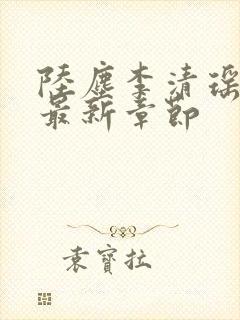 陸塵李清瑤
最新章節
袁寶拉